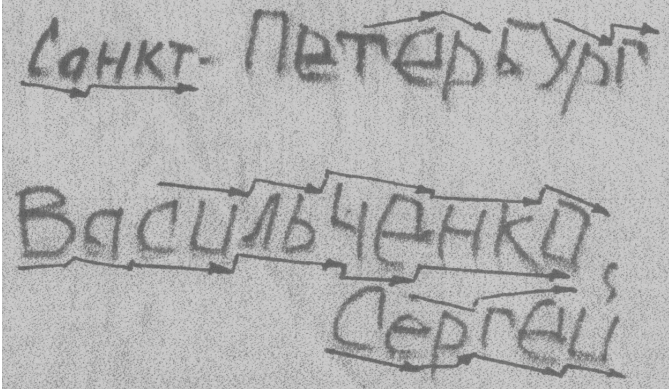 Санкт-Петербург
Васильченко
Сергей